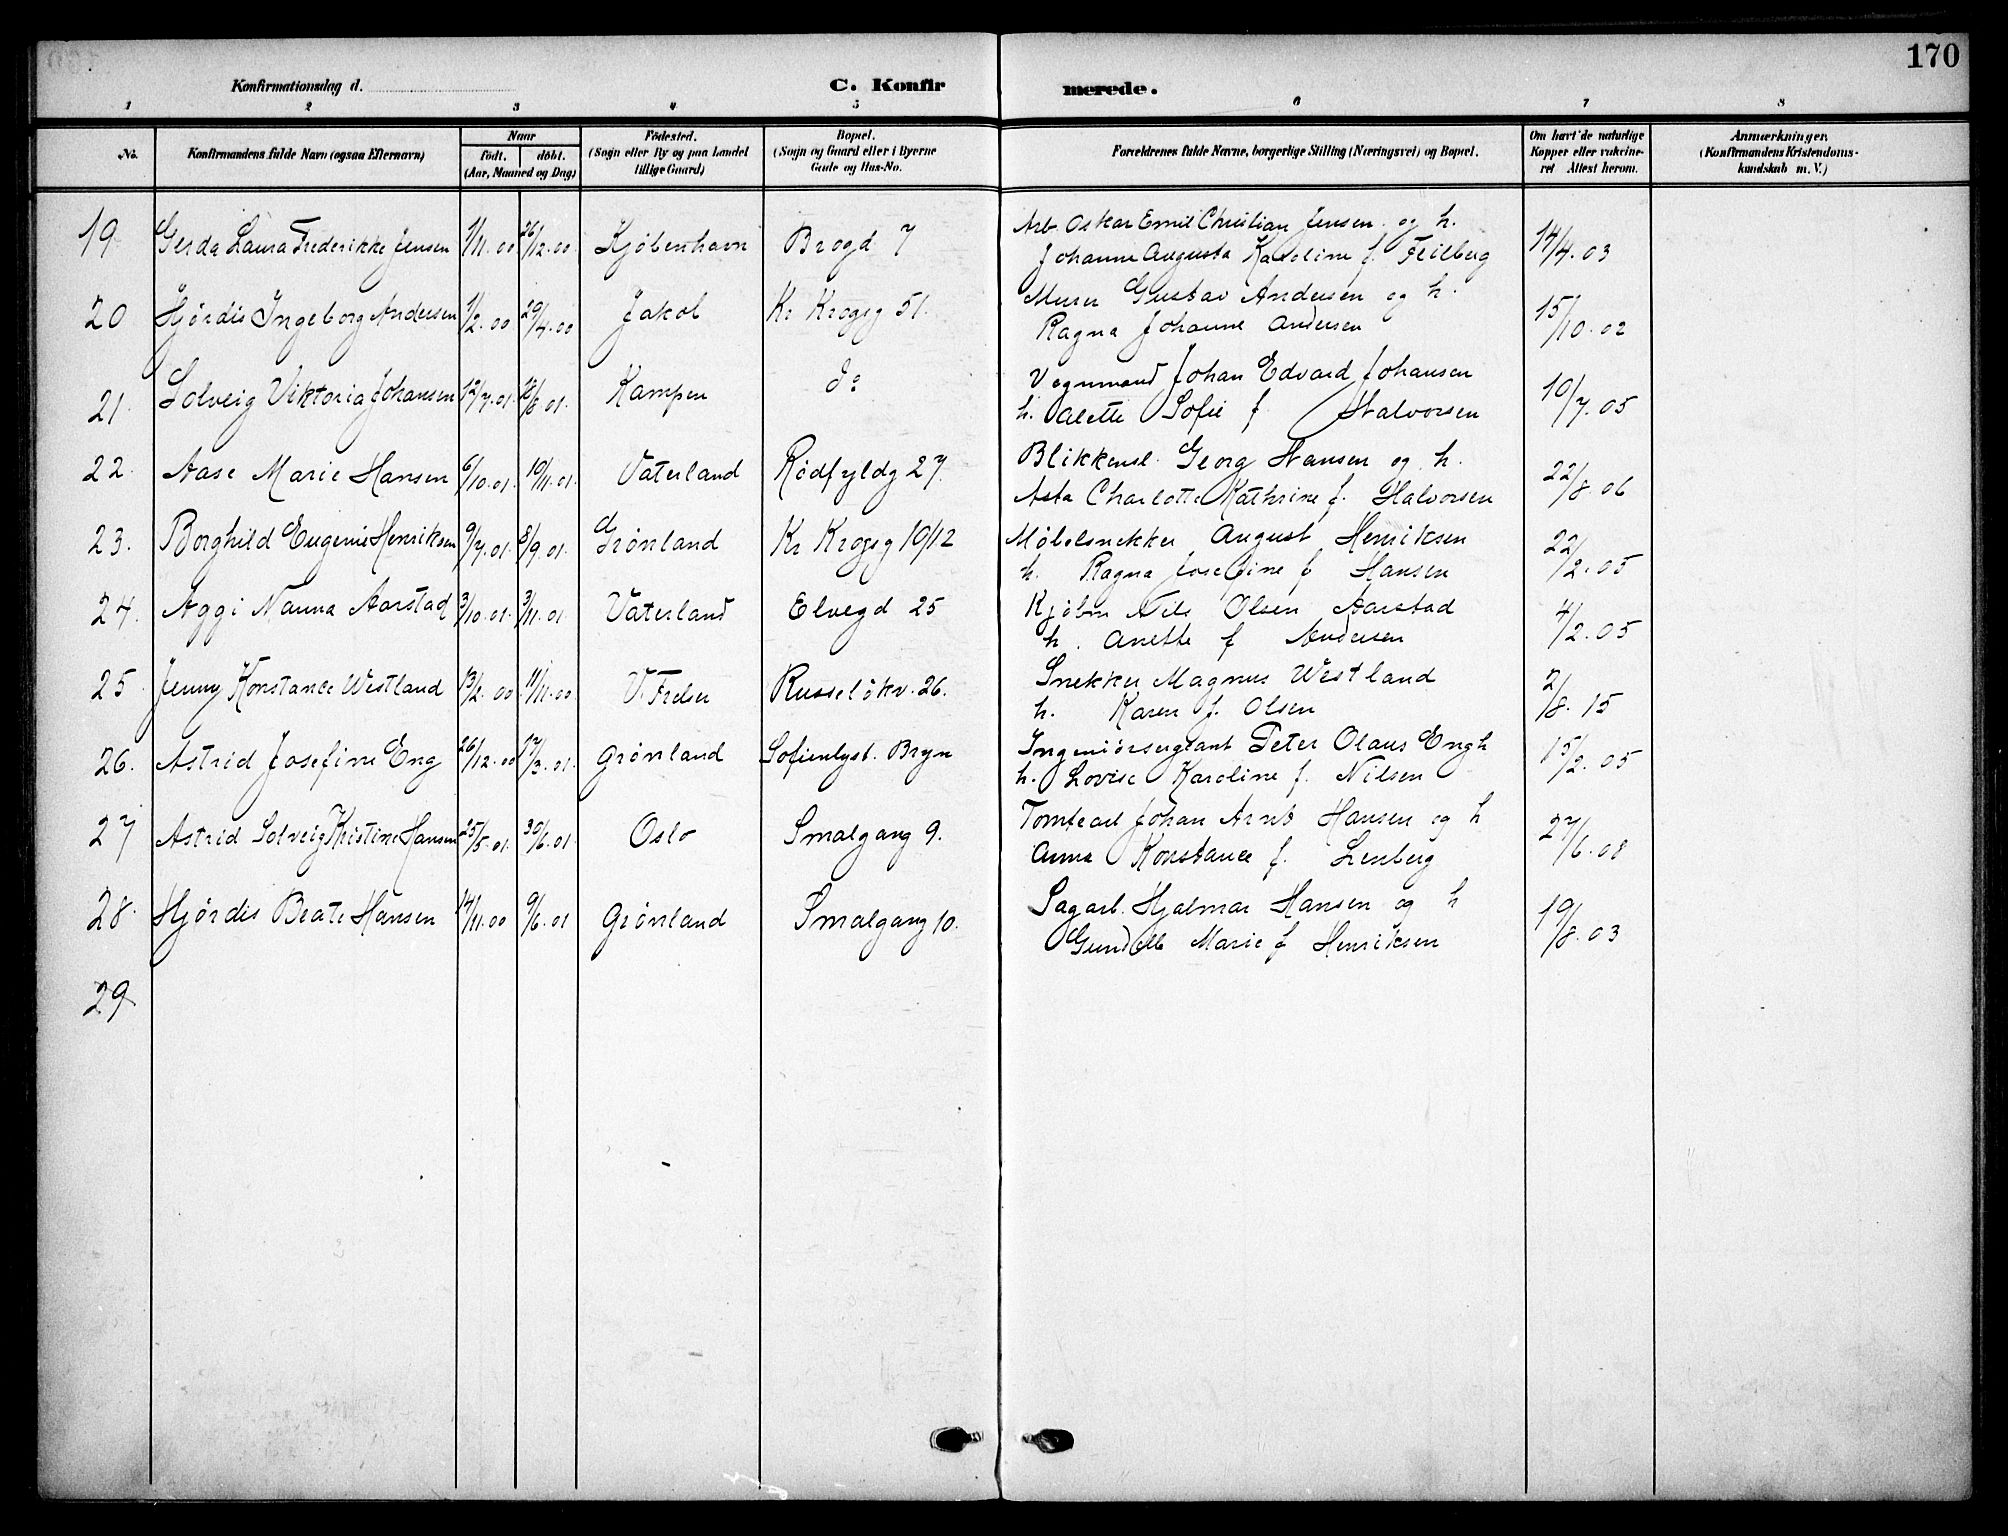 170
Konfirmationsdag d. C. Konfirmerede.
1 2 3 4 5 6 7 8
No. Konfirmandens fulde Navn (ogsaa Efternavn) Naar født. døbt. (Aar, Maaned og Dag) Fødested. (Sogn eller By og paa Landet tillige Gaard) Bopæl. (Sogn og Gaard eller i Byerne Gade og Hus-No. Forældrenes fulde Navne, borgerlige Stilling (Næringsvei) og Bopæl. Om havt de naturlige Kopper eller vakcineret Attest herom. Anmærkninger. (Konfirmandens Kristendomskundskab m. V.)
19 Gerda Laura Frederikke Jensen 1/11.00 26/12.00 Kjøbenhavn Brogd 7 Arb. Oskar Emil Christian Jensen og h. 14/4.03
Johanne Augusta Karoline f. Feilberg
20 Hjørdis Ingeborg Andersen 1/2.00 29/4.00 Jakob Kr Krogsg 51. Murer Gustav Andersen og h. 15/10.02
Ragna Johanne Andersen
21. Solveig Viktoria Johansen 12/7.01. Kampen do Vognmand Johan Edvard Johansen 10/7.05
h. Alette Sofie f Halvorsen
22. Aase Marie Hansen 6/10.01. 10/11.01. Vaterland Rødfyldg 27. Blikkensl. Georg Hansen og h. 22/8.06
Asta Charlotte Kathrine f. Halvorsen
23. Borghild Eugenie Henriksen 9/7.01. 8/9.01. Grønland Kr Krogsg 10/12 Møbelsnekker August Henriksen 22/2.05
h. Ragna Josefine f Hansen
24. Aggi Nanna Aarstad 3/10.01. 3/11.01 Vaterland Elvegd 25 Kjøbm Nils Olsen Aarstad 4/2.05
h. Anette f Andersen
25. Jenny Konstance Westland 13/2.00. 11/11.00 V. Frelser Russeløkv. 26. Snekker Magnus Westland 2/8.15
h. Karen f. Olsen
26. Astrid Josefine Eng 26/12.00 17/3.01. Grønland Sofienlyst. Bryn Ingeniørsergiant Peter Olaus Engh 15/2.05
h. Lovise Karoline f. Nilsen
27 Astrid Solveig Kristine Hansen 25/5.01. 30/6.01. Oslo Smalgang 9. Tomtearb Johan Arnt Hansen og h 27/6.08
Anna Konstance f. Lenberg
28. Hjørdis Beate Hansen 14/11.00 9/6.01 Grønland Smalgang 10. Sagarb. Hjalmar Hansen og h 19/8.03
Marie f Henriksen
29